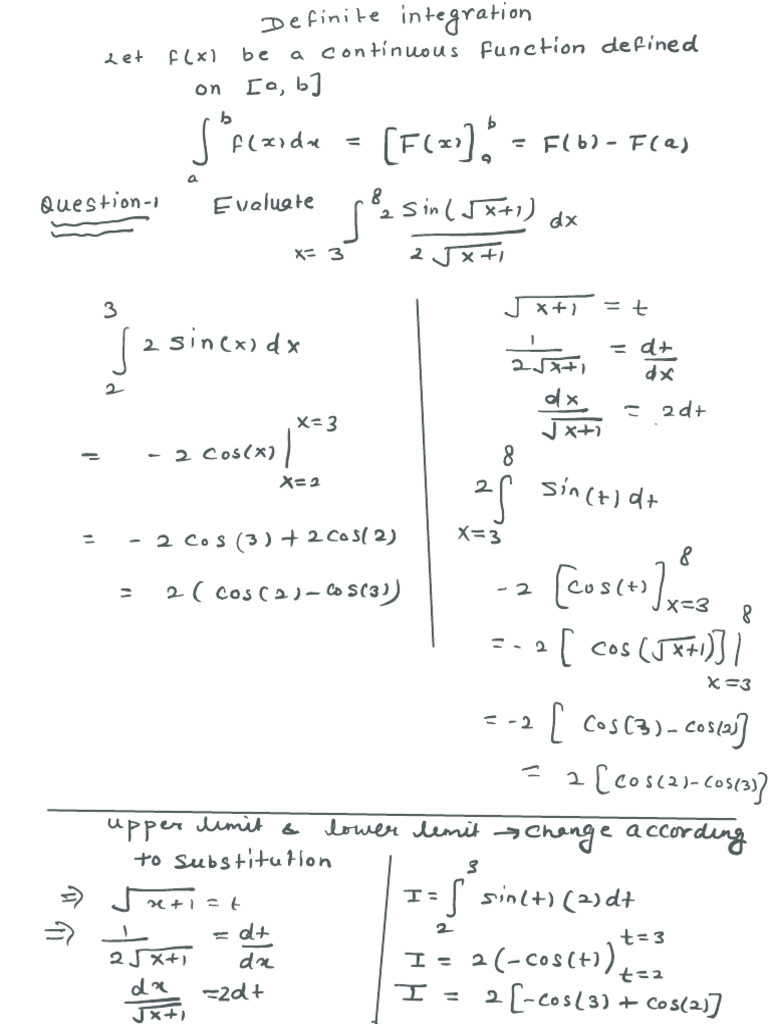 Definite integration
Let f(x) be a continuous function defined
on [a, b]
∫_a^b f(x)dx = [F(x)]_a^b = F(b) - F(a)
Question-1 Evaluate ∫_{x=3}^8 2 sin(√x+1) / 2√x+1 dx
∫_2^3 2 sin(x) dx
= - 2 cos(x) |_{x=2}^{x=3}
= - 2 cos(3) + 2cos(2)
= 2 ( cos(2) - cos(3))
√x+1 = t
1 / 2√x+1 = dt/dx
dx / √x+1 = 2dt
2 ∫_{x=3}^8 sin(t) dt
-2 [cos(t)]_{x=3}^8
= - 2 [ cos(√x+1)] |_{x=3}^8
= -2 [ cos(3) - cos(2)]
= 2 [cos(2) - cos(3)]
upper limit & lower limit → change according
to substitution
⇒ √x+1 = t
⇒ 1 / 2√x+1 = dt/dx
dx / √x+1 = 2dt
I = ∫_2^3 sin(t) (2) dt
I = 2(-cos(t))_{t=2}^{t=3}
I = 2[-cos(3) + cos(2)]